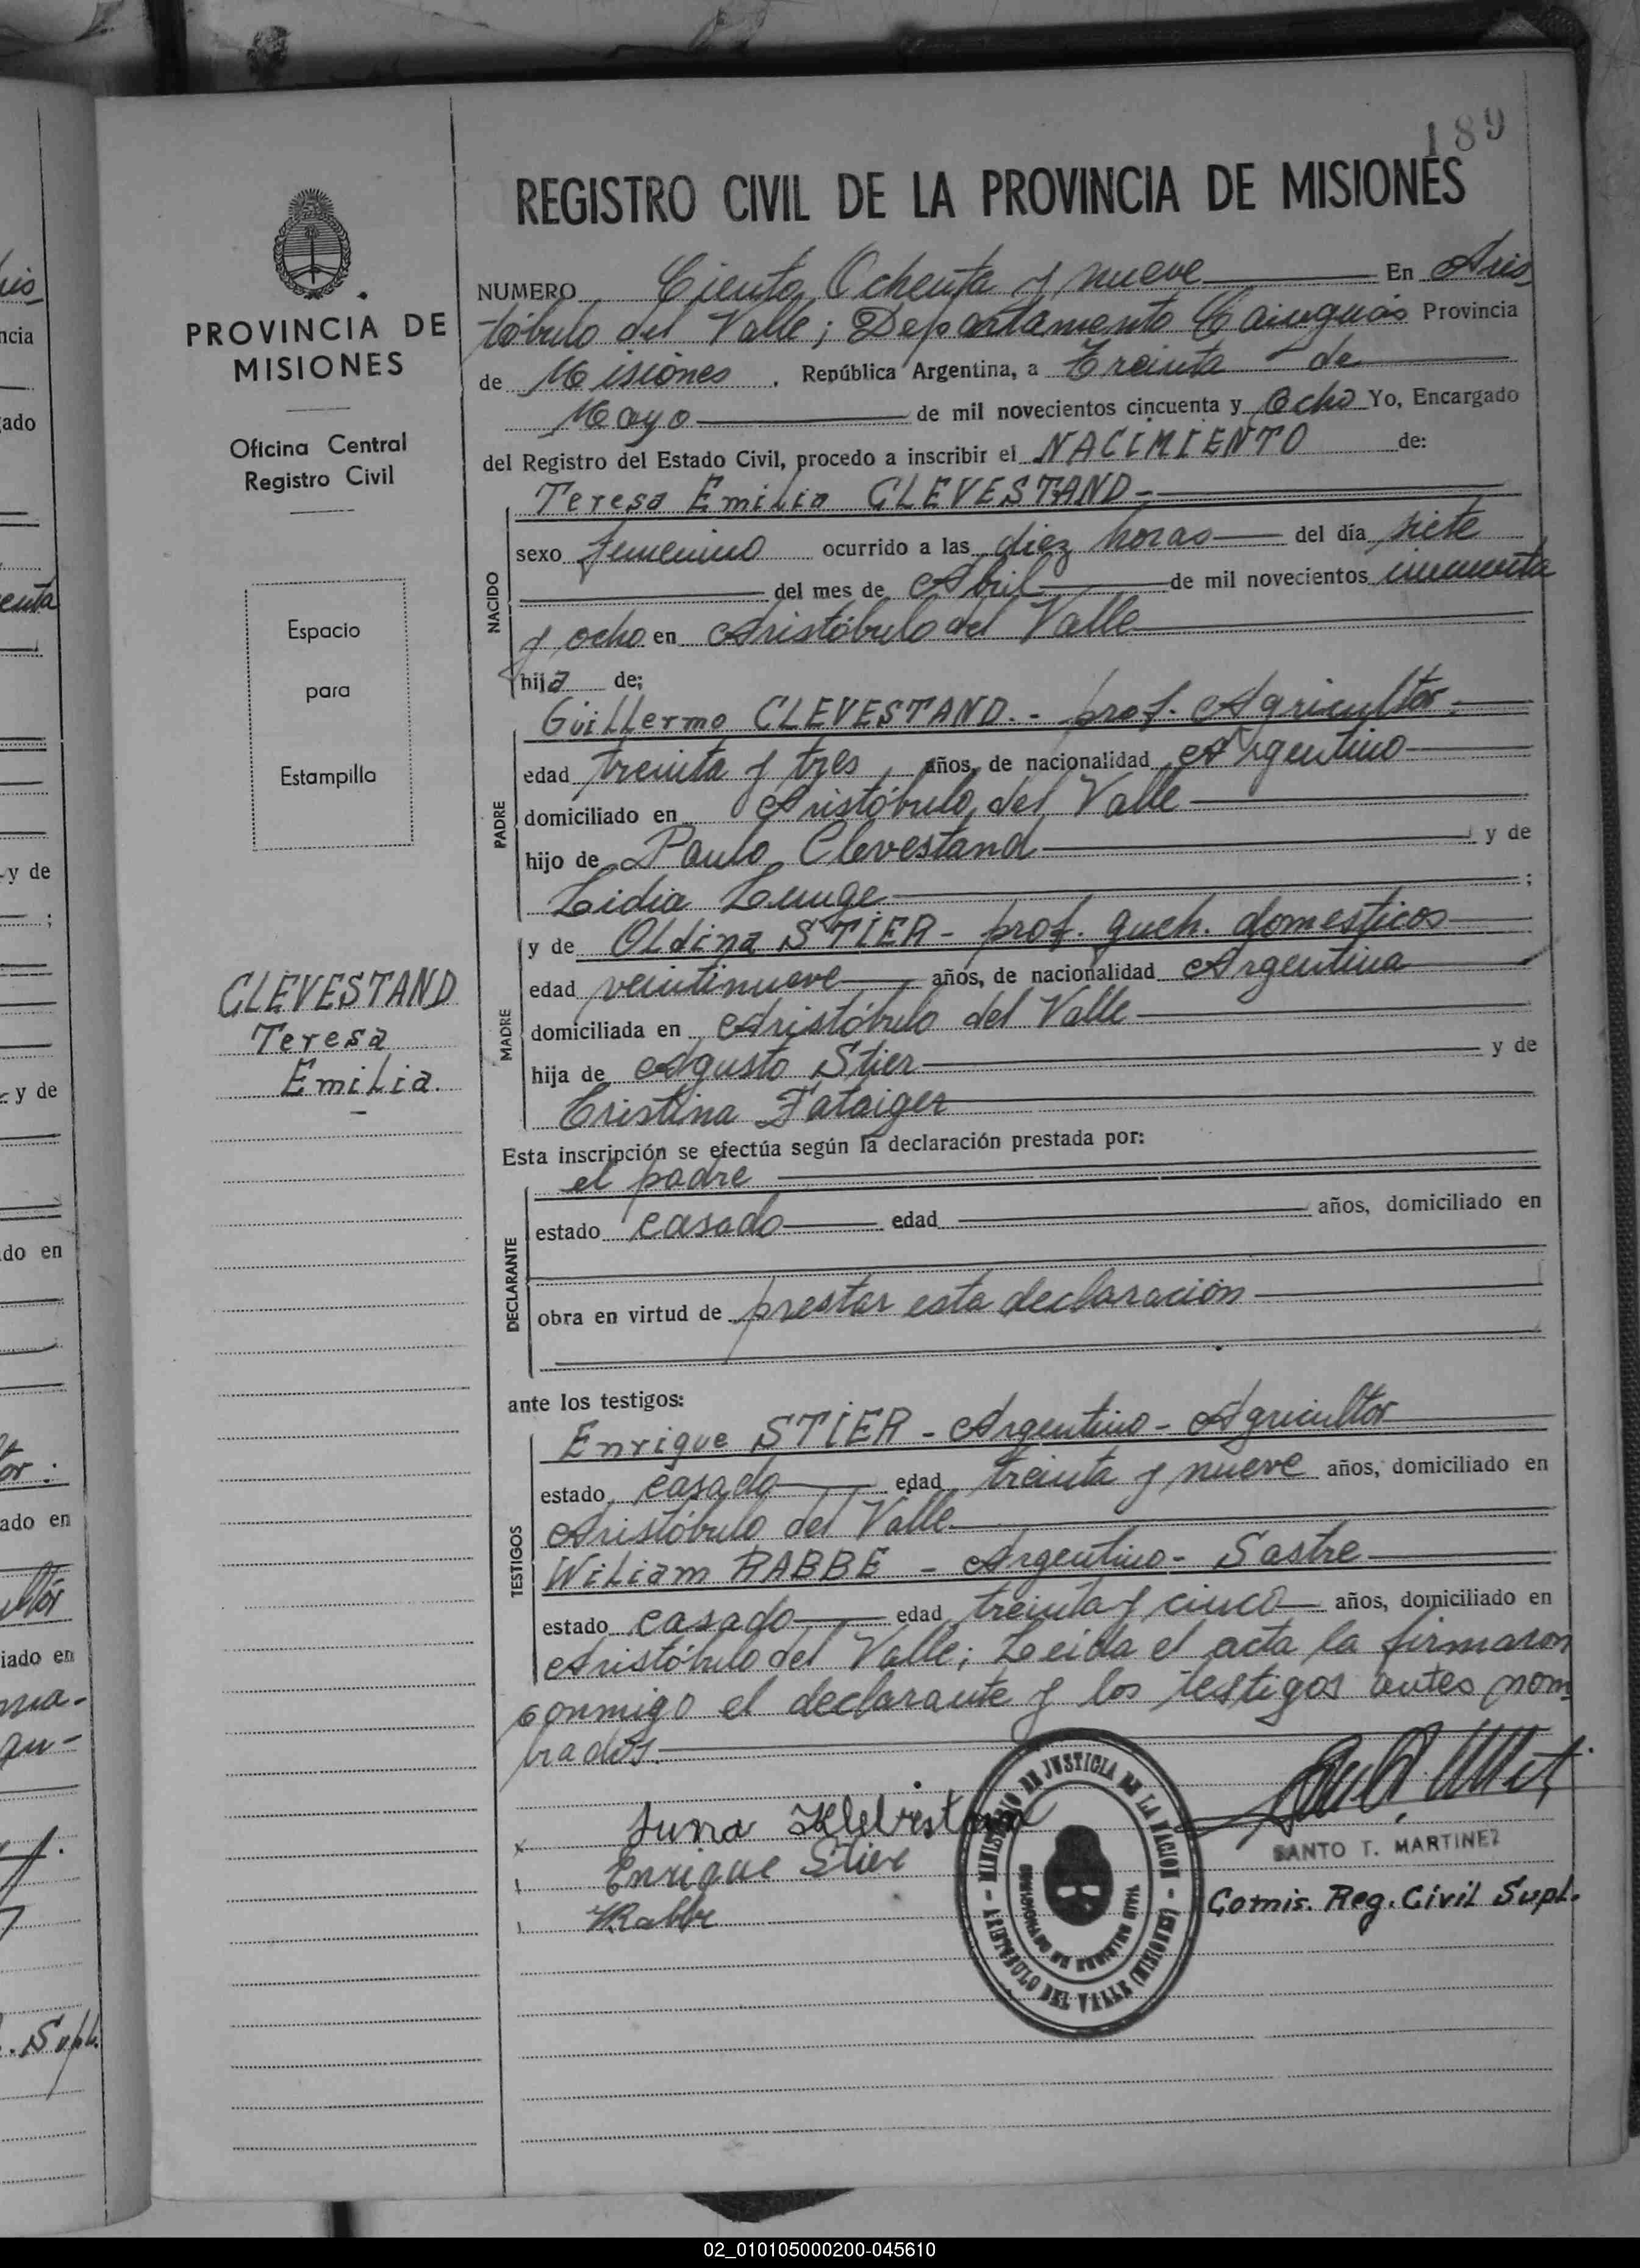 189
REGISTRO CIVIL DE LA PROVINCIA DE MISIONES
PROVINCIA DE
MISIONES
Oficina Central
Registro Civil
Espacio
para
Estampilla
CLEVESTAND
Teresa
Emilia.
NUMERO Ciento Ochenta y nueve En Aris
tóbulo del Valle; Departamento Cainguás Provincia
de Misiones, República Argentina, a Treinta de
Mayo de mil novecientos cincuenta y Ocho Yo, Encargado
del Registro del Estado Civil, procedo a inscribir el NACIMIENTO de:
NACIDO
Teresa Emilia CLEVESTAND-
sexo femenino ocurrido a las diez horas del día siete
del mes de Abril de mil novecientos cincuenta
y ocho en Aristóbulo del Valle
hija de;
PADRE
Guillermo CLEVESTAND.- prof. Agricultor.
edad treinta y tres años, de nacionalidad Argentino
domiciliado en Aristóbulo del Valle
hijo de Paulo Clevestand y de
Lidia ;
MADRE
y de Oldina STIER- prof. queh. domesticos
edad veintinueve años, de nacionalidad Argentina
domiciliada en Aristóbulo del Valle
hija de Agusto Stier y de
Cristina Fataiger
Esta inscripción se efectúa según la declaración prestada por:
DECLARANTE
el padre
estado casado edad años, domiciliado en
obra en virtud de prestar esta declaración
ante los testigos:
TESTIGOS
Enrique STIER - Argentino - Agricultor
estado casado edad treinta y nueve años, domiciliado en
Aristóbulo del Valle
Wiliam RABBE - Argentino - Sastre
estado casado edad treinta y cinco años, domiciliado en
Aristóbulo del Valle; Leida el acta la firmaron
conmigo el declarante y los testigos antes nom
brados.
Enrique Stier
Rabbe
MINISTERIO DE JUSTICIA DE LA NACION
ARISTOBULO DEL VALLE (MISIONES)
SANTO T. MARTINEZ
Comis. Reg. Civil Supl.
02_010105000200-045610